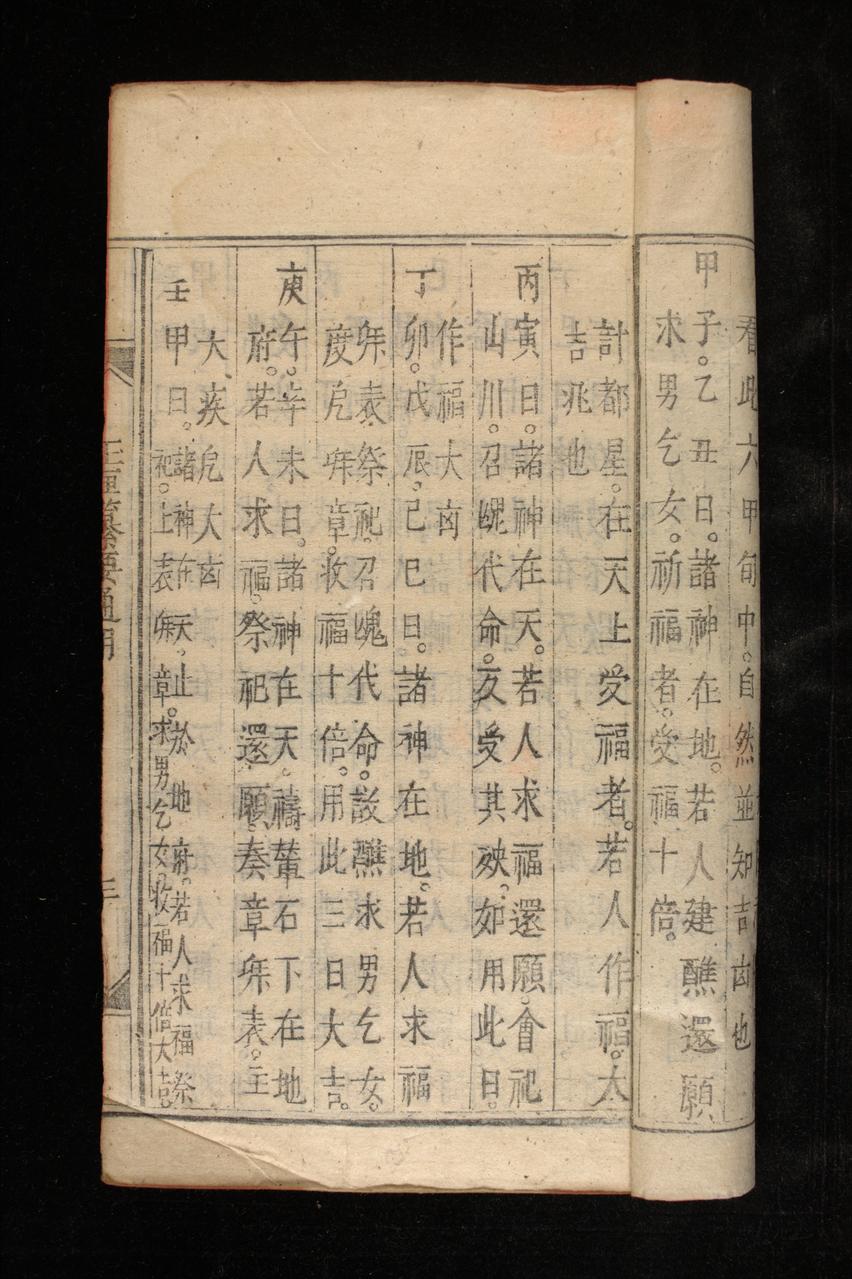 看此六甲旬中。自然並知吉㐫也
甲子。乙丑日。諸神在地。若人建醮還願
求男乞女。祈福者。受福十倍。
計都星。在天上受福者。若人作福。大
吉兆也
丙寅日。諸神在天。若人求福還願。會祀
山川。召䰟代命。反受其殃。如用此日。
作福大㐫
丁卯。戊辰。己巳日。諸神在地。若人求福
表祭祀。召䰟代命。設醮求男乞女。
度 章。收福十倍。用此三日大吉。
庚午。辛未日。諸神在天。禱輦石下在地
府。若人求福。祭祀還願。奏章 表。主
大疾 大㐫
壬申日。諸神在天。止於地府。若人求福祭
祀。上表 章。求男乞女。收福十倍大吉。
玉匣纂要通用